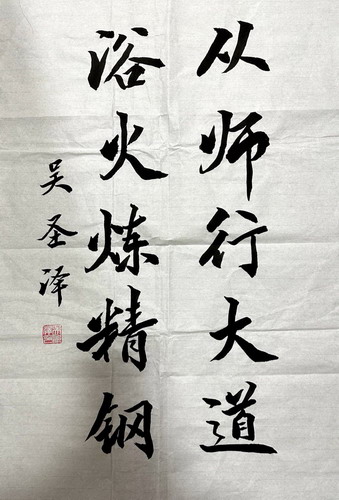 从师行大道
浴火炼精钢
吴圣泽